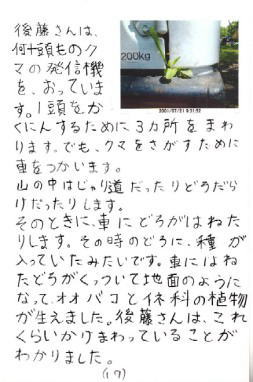 後藤さんは、
何十頭ものク
マの発信機
を、おっていま
す。1頭をか
くにんするために3カ所をまわ
ります。でも、クマをさがすために
車をつかいます。
山の中はじゃり道だったりどろだら
けだったりします。
そのときに、車にどろがはねた
りします。その時のどろに、種が
入っていたみたいです。車にはね
たどろがくっついて地面のように
なって、オオバコとイネ科の植物
が生えました。後藤さんは、これ
くらいかけまわっていることが
わかりました。
(17)
200kg
2001/07/21